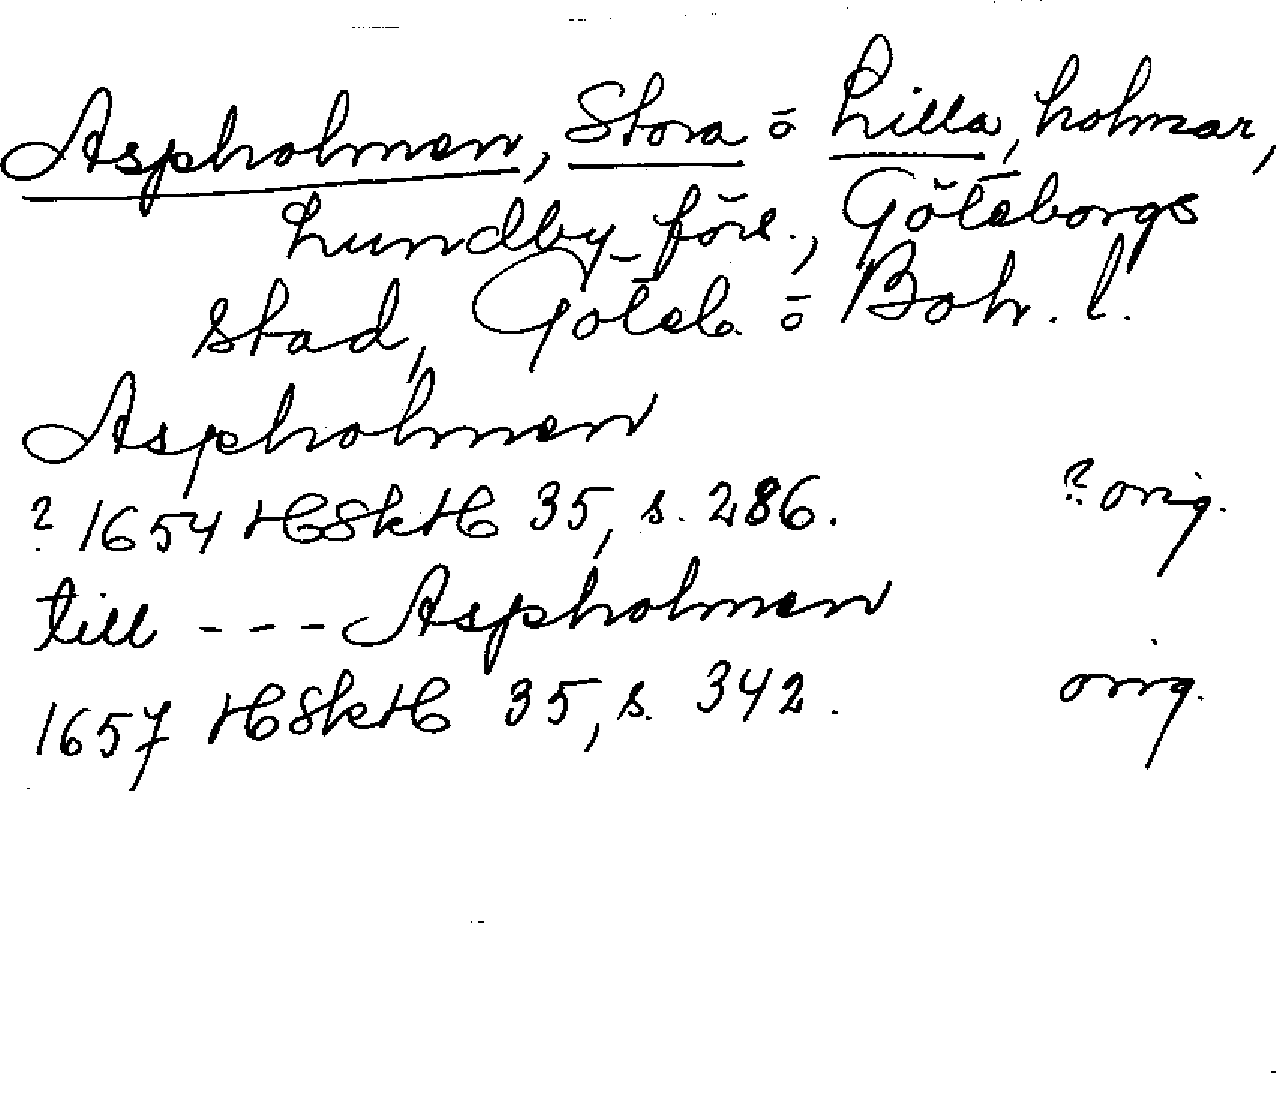 Aspholmen, Stora o Lilla, holmar,
Lundby förs., Göteborgs
stad, Göteb. o Boh. l.
Aspholmen
? 1654 HSkH 35, s. 286. ? orig.
till --- Aspholmen
1657 HSkH 35, s. 342. orig.